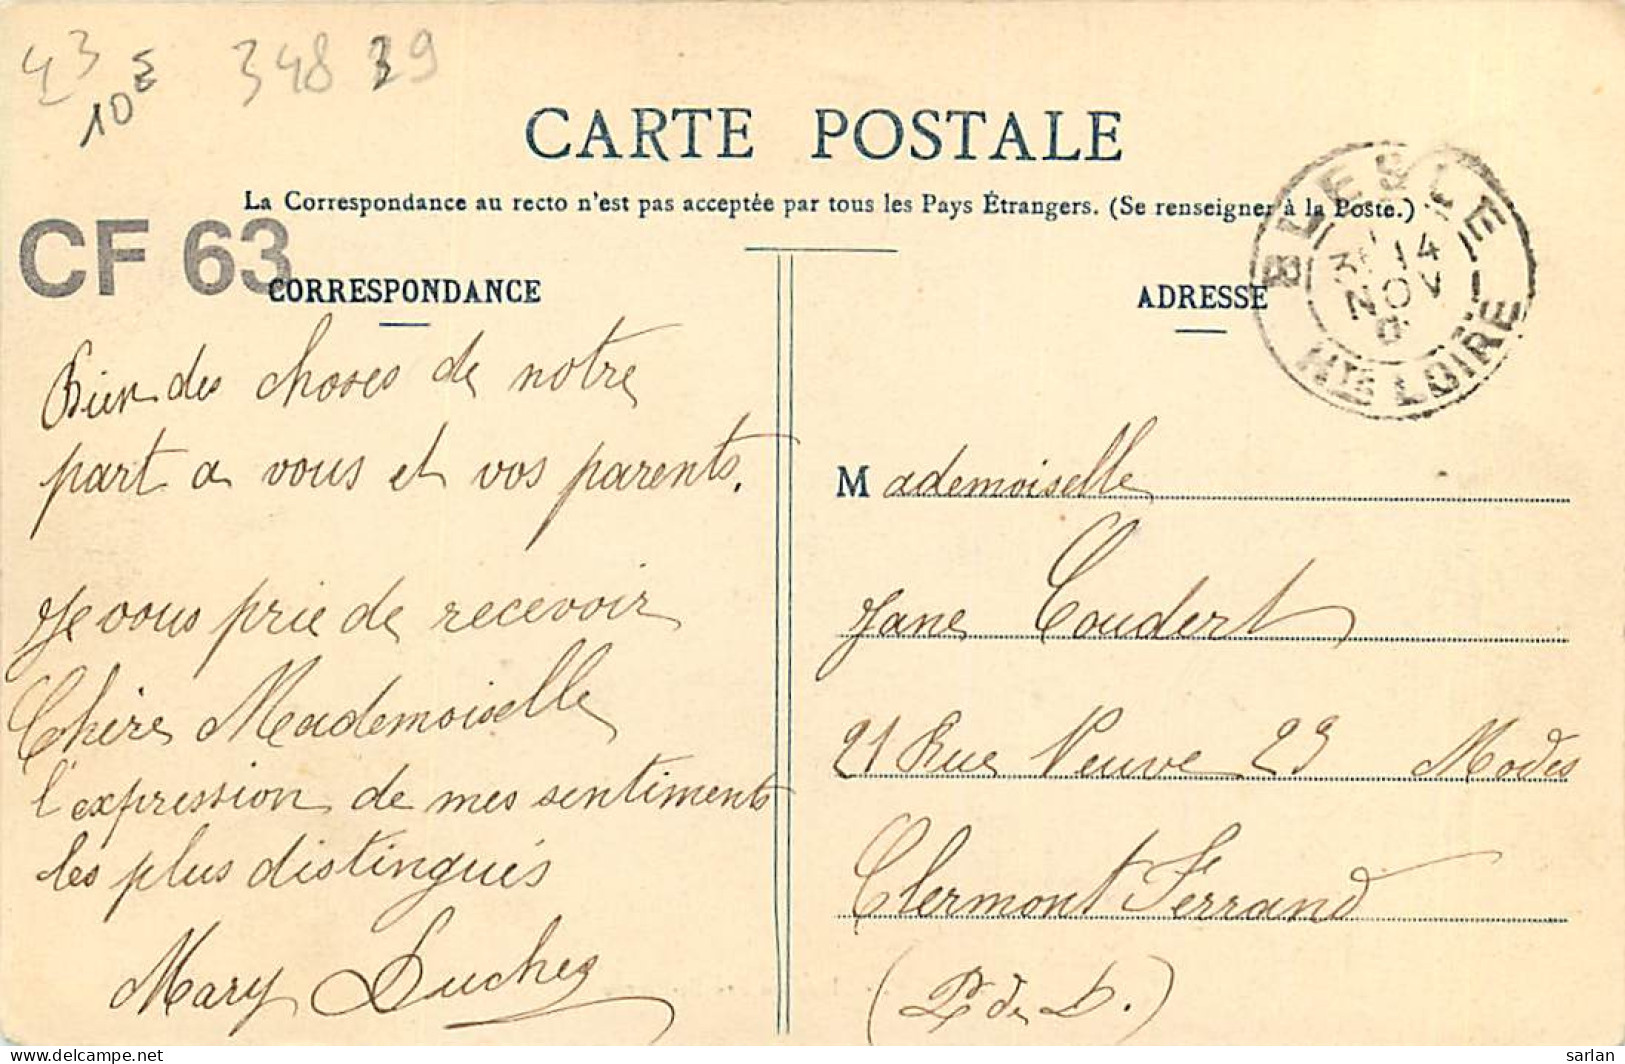 43
10E
348 39
CARTE POSTALE
La Correspondance au recto n'est pas acceptée par tous les Pays Étrangers. (Se renseigner à la Poste.)
CF 63
CORRESPONDANCE
Bien des choses de notre
part a vous et vos parents.
Je vous prie de recevoir
Chère Mademoiselle
l'expression de mes sentiments
les plus distingués
Mary Duchez
ADRESSE
BLESLE
14
NOV
HTE LOIRE
Mademoiselle
Jane Coudert
21 Rue Neuve 23 Modes
Clermont Ferrand
(P. de D.)
sarlan
delcampe.net